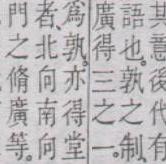 其意後代有
語也。孰之制
廣得三之一。
爲孰。亦得堂
者、北向南向
門之脩廣等。